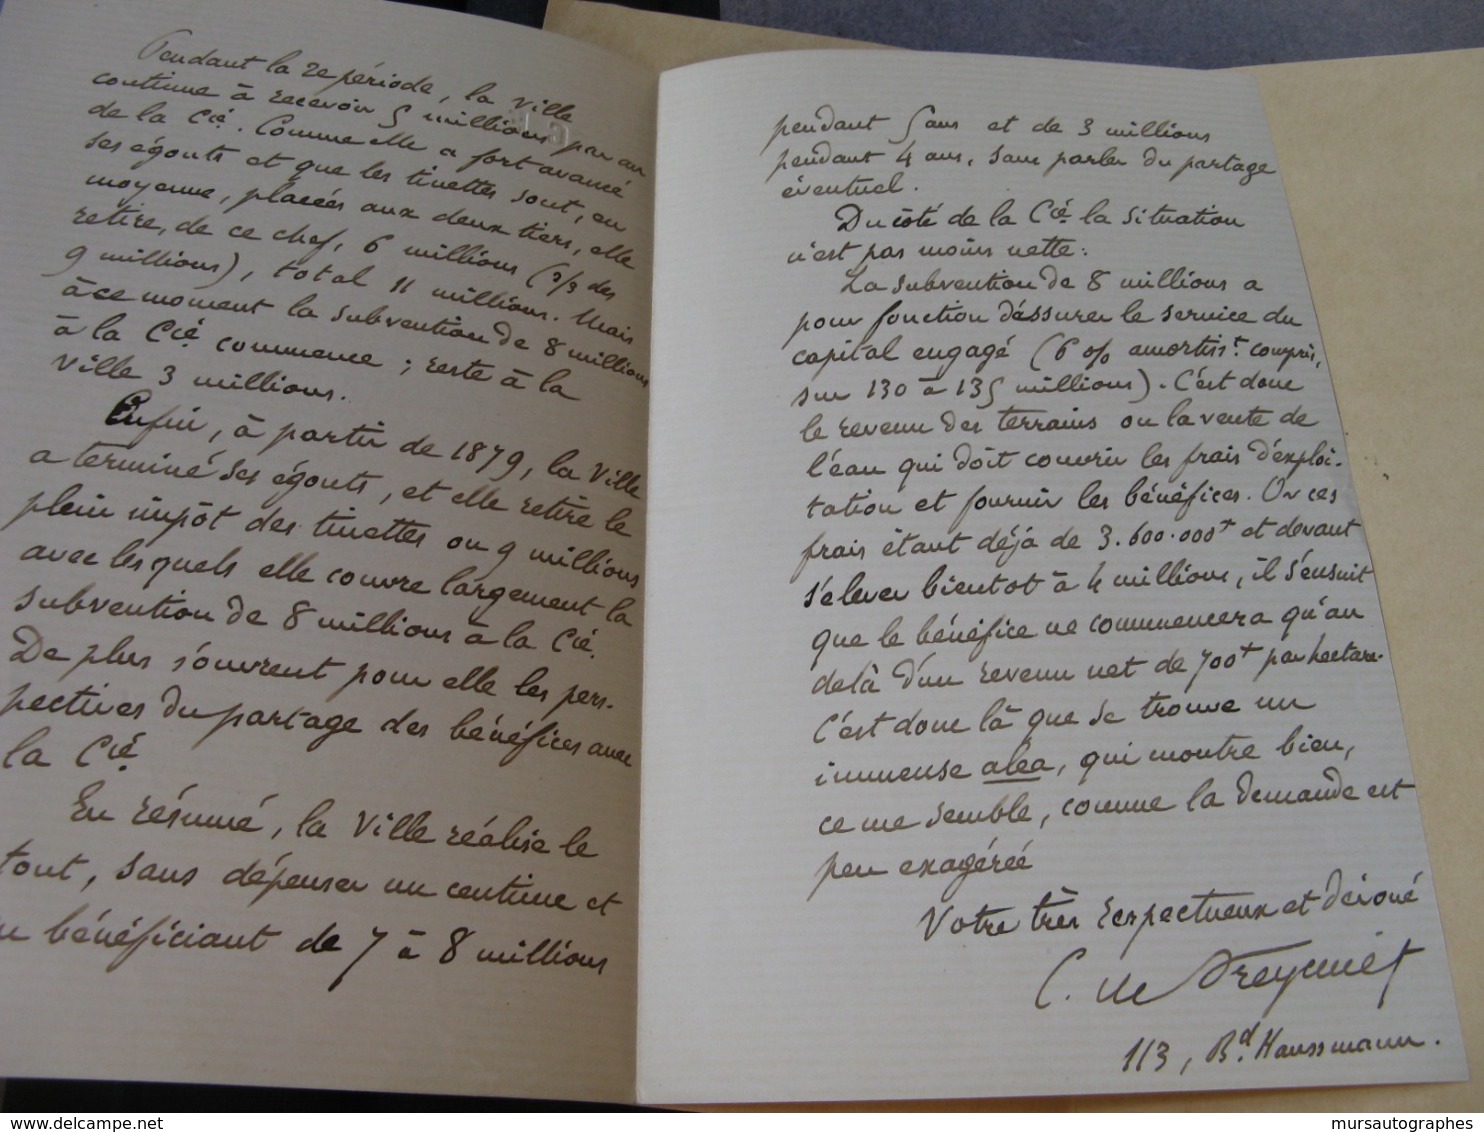 Pendant la 2e période, la Ville
continue à recevoir 5 millions par an
de la Cié. Comme elle a fort avancé
ses égouts et que les tinettes sont, en
moyenne, placées aux deux tiers, elle
retire, de ce chef, 6 millions (2/3 des
9 millions), total 11 millions. Mais
à ce moment la subvention de 8 millions
à la Cié commence ; reste à la
Ville 3 millions.
Enfin, à partir de 1879, la Ville
a terminé ses égouts, et elle retire le
plein impôt des tinettes ou 9 millions
avec lesquels elle couvre largement la
subvention de 8 millions à la Cié.
De plus s'ouvrent pour elle les pers-
pectives du partage des bénéfices avec
la Cié
En résumé, la Ville réalise le
tout, sans dépenser un centime et
bénéficiant de 7 à 8 millions
pendant 5 ans et de 3 millions
pendant 4 ans, sans parler du partage
éventuel.
Du côté de la Cié la situation
n'est pas moins nette :
La subvention de 8 millions a
pour fonction d'assurer le service du
capital engagé (6 % amortist. compris,
sur 130 à 135 millions). C'est donc
le revenu des terrains ou la vente de
l'eau qui doit couvrir les frais d'exploi-
tation et fournir les bénéfices. Or ces
frais étant déjà de 3.600.000f et devant
s'élever bientôt à 4 millions, il s'ensuit
que le bénéfice ne commencera qu'au
delà d'un revenu net de 700f par hectare.
C'est donc là que se trouve un
immense alea, qui montre bien,
ce me semble, comme la demande est
peu exagérée
Votre très respectueux et dévoué
C. de Freycinet
113, Bd. Haussmann.
mursautographes
delcampe.net